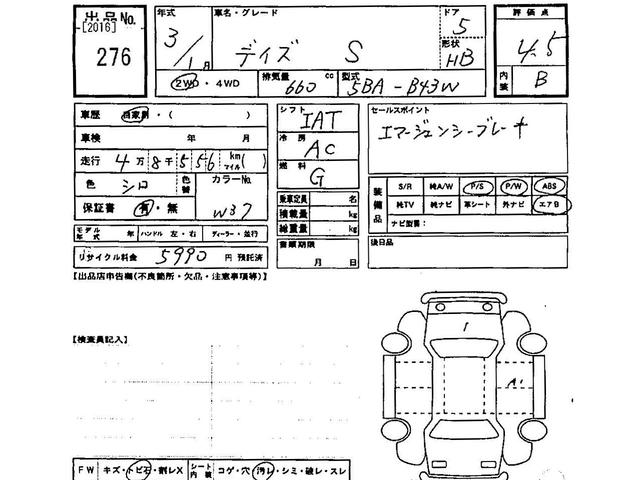 出品No.
[2016]
276
年式
3/1月
車名・グレード
デイズ S
ドア
5
形状
HB
2WD・4WD
排気量 660 cc
型式 5BA-B43W
評価点
4.5
内装 B
車歴 自家用・( )
車検 年 月
走行 4万8千556 km マイル( )
色 シロ 色替
カラーNo. W37
保証書 有・無
モデル年式 年 ハンドル 左・右 ディーラー・並行
リサイクル料金 5990 円 預託済
シフト
IAT
冷房
AC
燃料
G
乗車定員 名
積載量 kg
総重量 kg
書類期限
月 日
セールスポイント
エマージェンシーブレーキ
装備品
S/R 純A/W P/S P/W ABS
純TV 純ナビ 革シート 外ナビ エアB
ナビ型番:
後日品
【出品店申告欄(不良箇所・欠品・注意事項等)】
【検査員記入】
A1
FW キズ・トビ石・割レX シート内装 コゲ・穴 汚レ・シミ・破レ・スレ